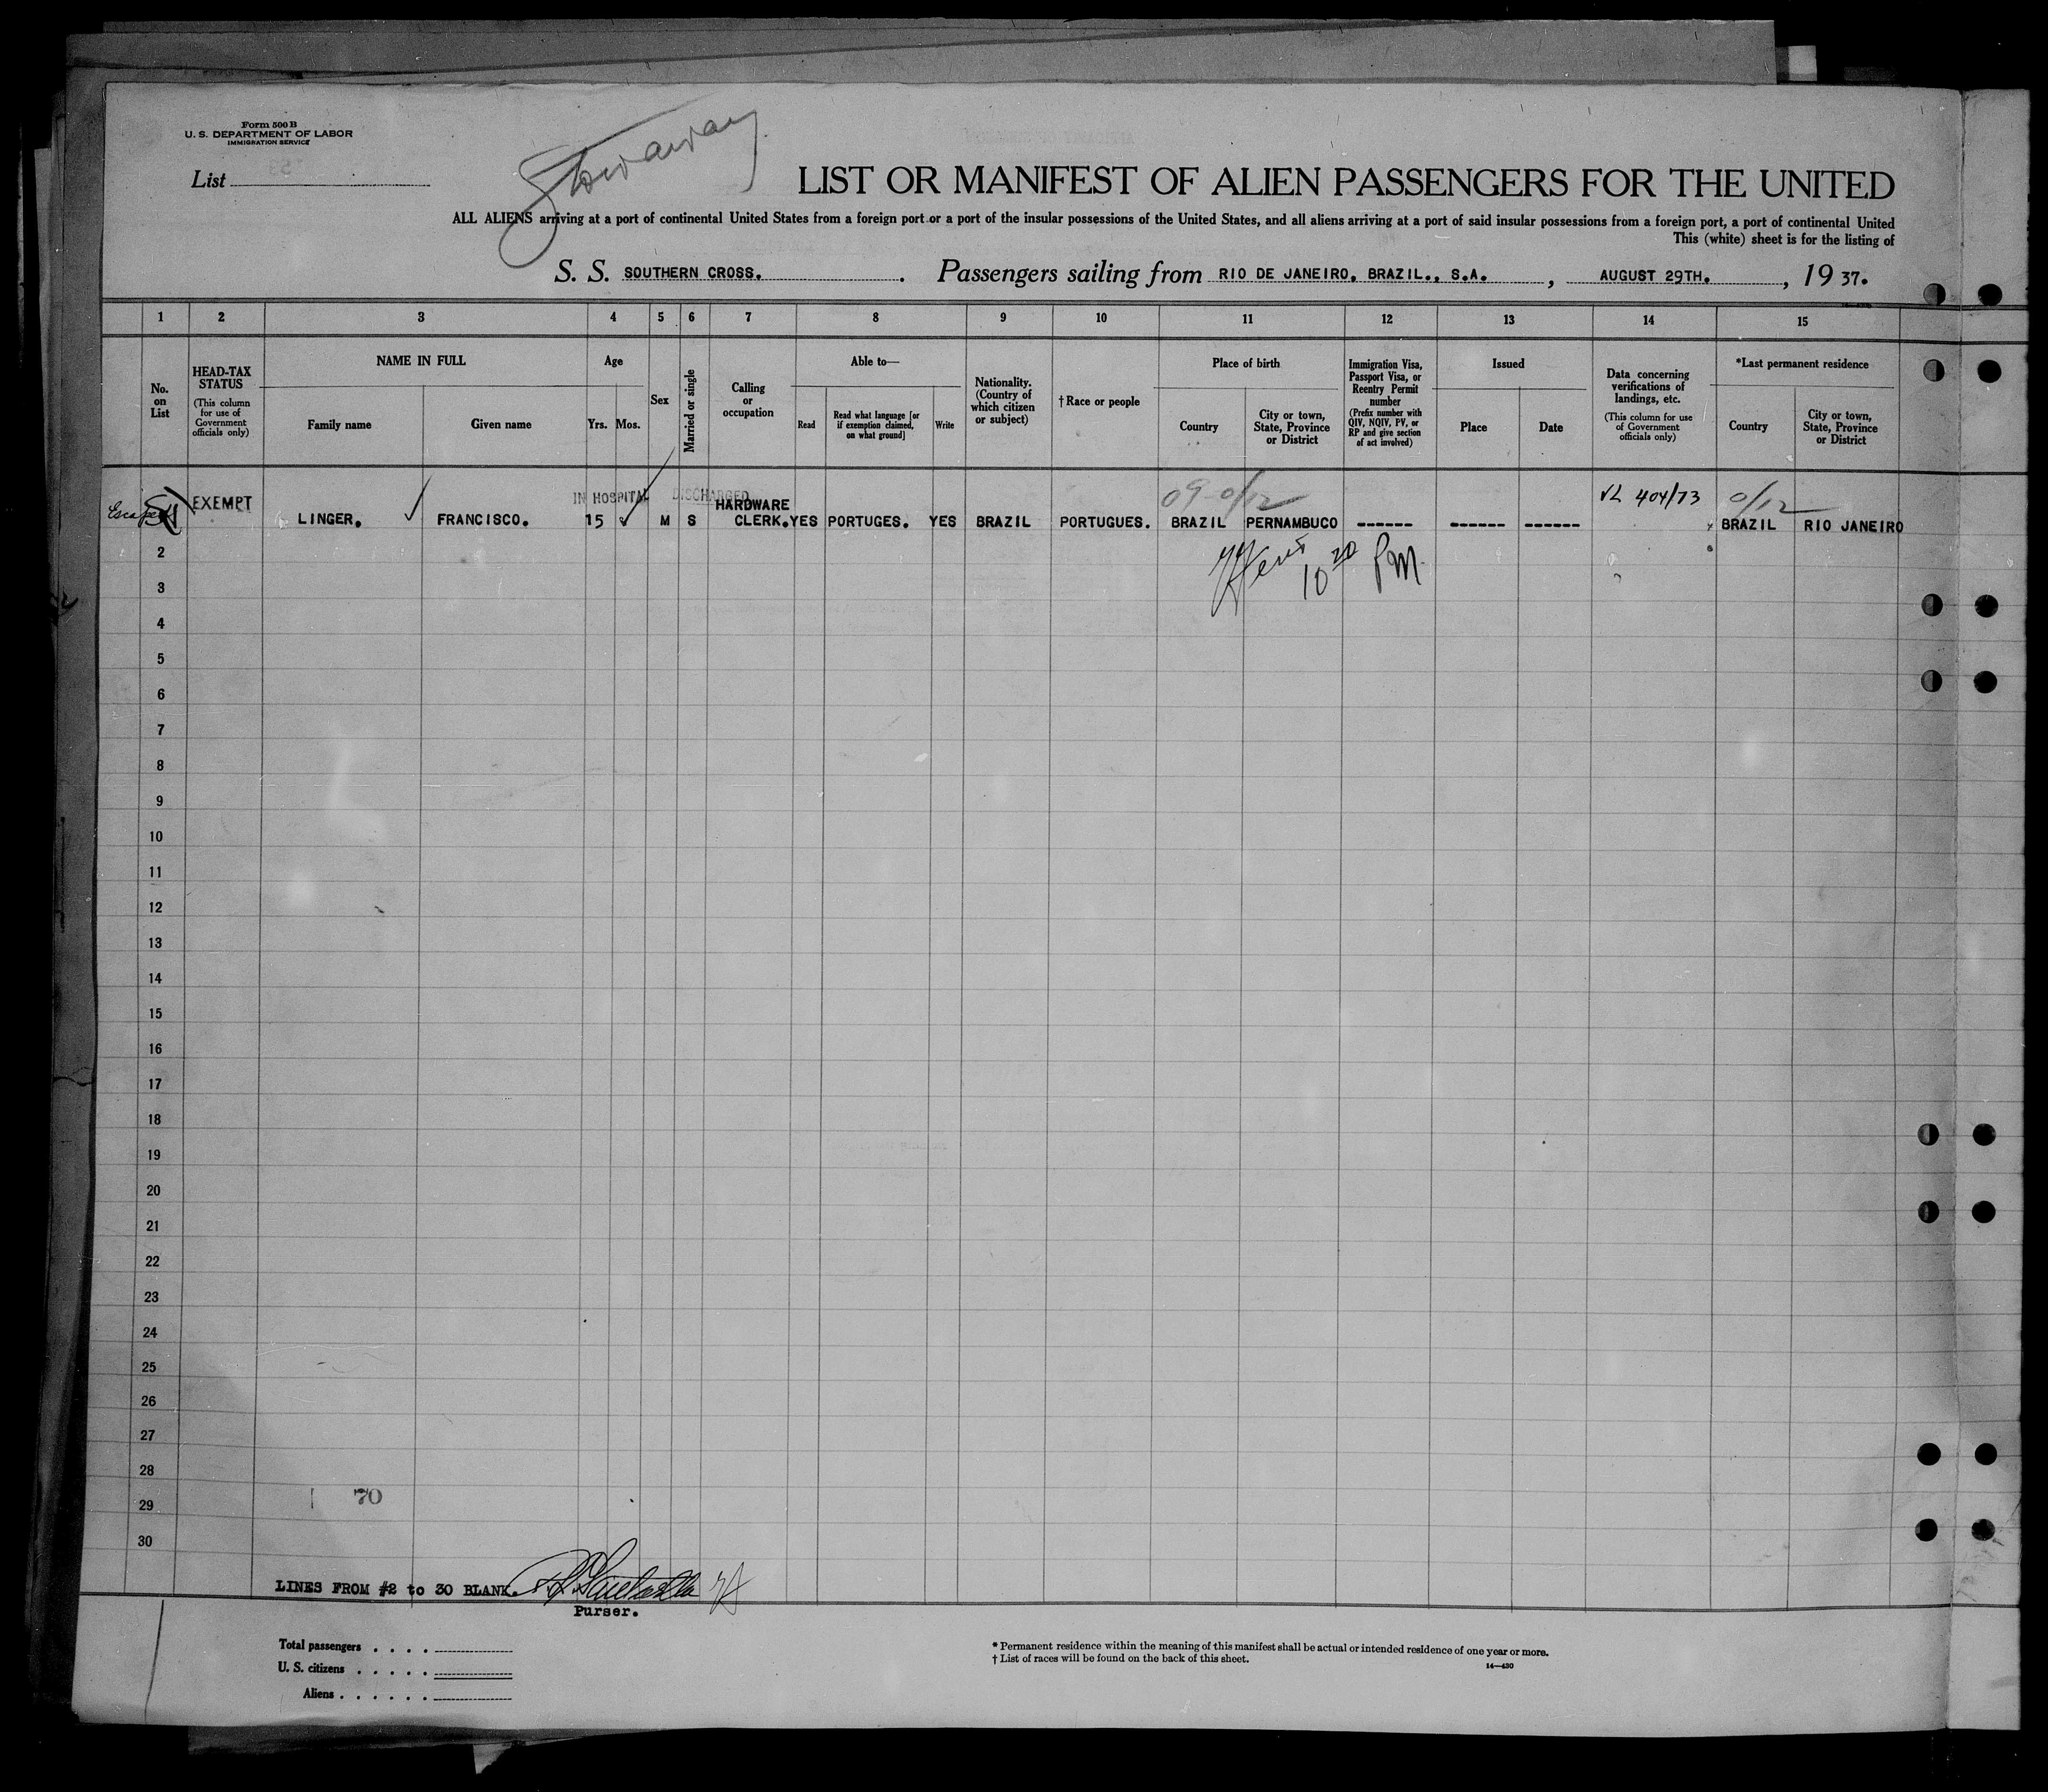 Form 500 B
U. S. DEPARTMENT OF LABOR
IMMIGRATION SERVICE
List
Stowaway
LIST OR MANIFEST OF ALIEN PASSENGERS FOR THE UNITED
ALL ALIENS arriving at a port of continental United States from a foreign port or a port of the insular possessions of the United States, and all aliens arriving at a port of said insular possessions from a foreign port, a port of continental United
This (white) sheet is for the listing of
S. S. SOUTHERN CROSS. . Passengers sailing from RIO DE JANEIRO. BRAZIL., S.A. , AUGUST 29TH. , 19 37.
1 2 3 4 5 6 7 8 9 10 11 12 13 14 15
No. on List
HEAD-TAX STATUS (This column for use of Government officials only)
NAME IN FULL
Family name Given name
Age
Yrs. Mos.
Sex
Married or single
Calling or occupation
Able to—
Read
Read what language [or if exemption claimed, on what ground]
Write
Nationality. (Country of which citizen or subject)
† Race or people
Place of birth
Country
City or town, State, Province or District
Immigration Visa, Passport Visa, or Reentry Permit number (Prefix number with QIV, NQIV, PV, or RP and give section of act involved)
Issued
Place Date
Data concerning verifications of landings, etc. (This column for use of Government officials only)
*Last permanent residence
Country
City or town, State, Province or District
IN HOSPITAL DISCHARGED 09-0/12 VL 404/73 0/12
Escaped EXEMPT LINGER. FRANCISCO. 15 M S HARDWARE CLERK. YES PORTUGES. YES BRAZIL PORTUGUES. BRAZIL PERNAMBUCO ------ ------ ------ BRAZIL RIO JANEIRO
2
10 20 PM
3
4
5
6
7
8
9
10
11
12
13
14
15
16
17
18
19
20
21
22
23
24
25
26
27
28
70
29
30
LINES FROM #2 to 30 BLANK.
Purser.
Total passengers . . . .
U. S. citizens . . . . .
Aliens . . . . . .
* Permanent residence within the meaning of this manifest shall be actual or intended residence of one year or more.
† List of races will be found on the back of this sheet.
14—430